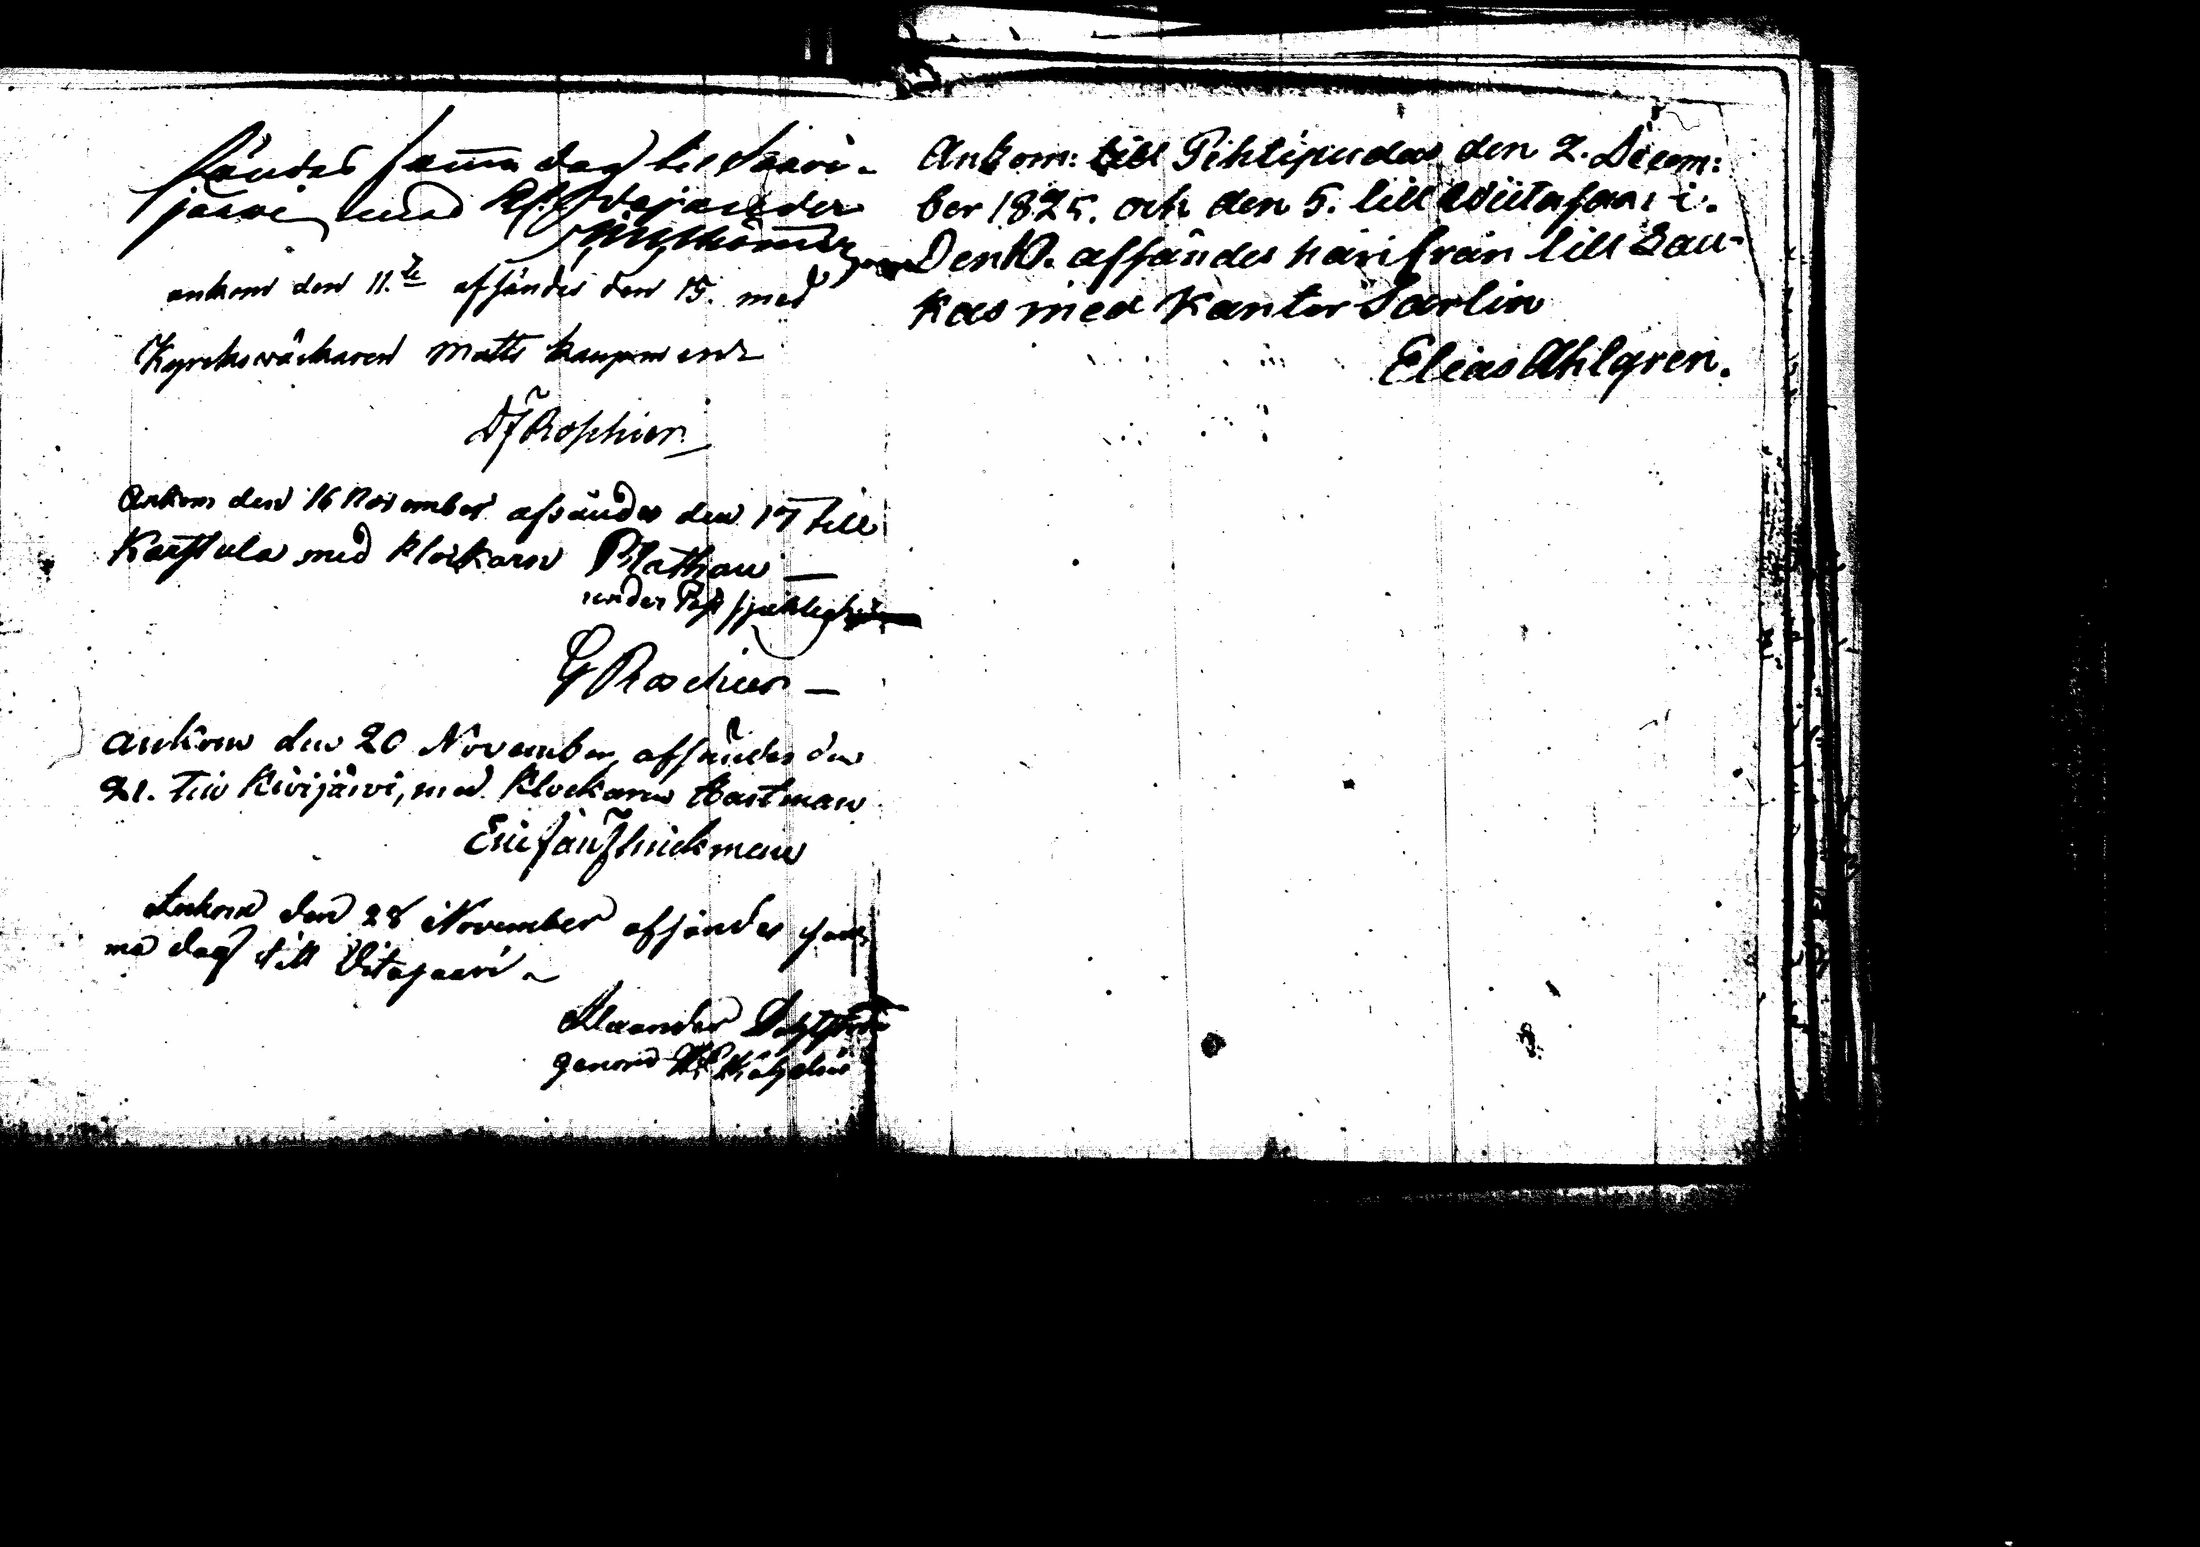 sändes samma dag till Saari-
järvi med
ankom den 11.te afsändes den 15. med
Kyrckowäcktaren Matts Kaupinen
DF Roschier
Ankom den 16 November afsändes den 17 till
Karstula med klockaren Plathan —
under
G Roschier —
ankom den 20 November, afsändes den
21. till Kivijärvi, med Klockaren Eastman
Eric Joh
Ankom den 28 November afsändes sam
ma dag till Vitasaari
Alexander
genom
Ankom: till Pihtipudas den 2. Decem:
ber 1825. och den 5. till Wiitasaari.
Den 10. afsändes härifrån till Lau-
kas med Kantor Sarlin
Elias Ahlgren.